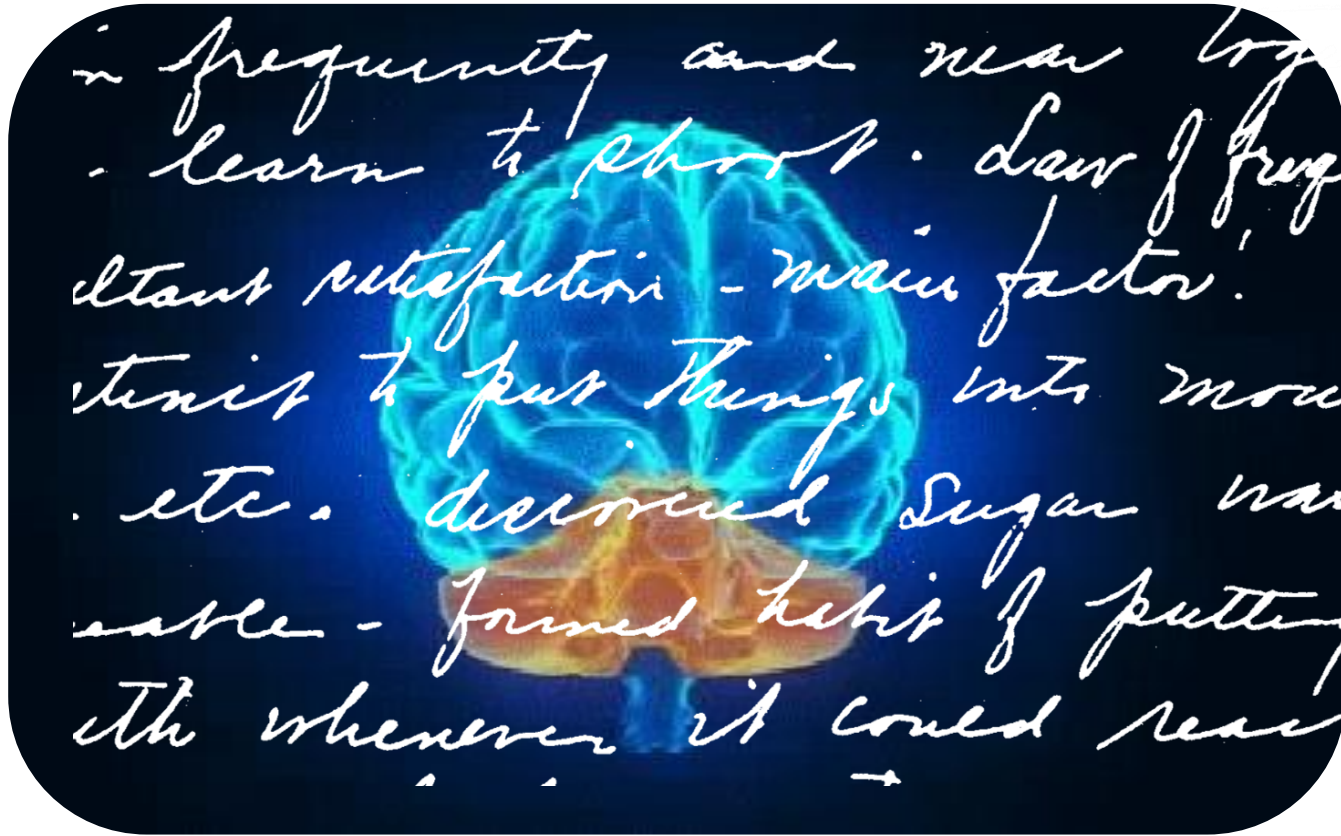 in frequently and near tog
- learn to shoot. Law of freq
ultant satisfaction - main factor!
stinct to put things into mou
. etc. discovered Sugar was
eatable - formed habit of puttin
uth whenever it could reac